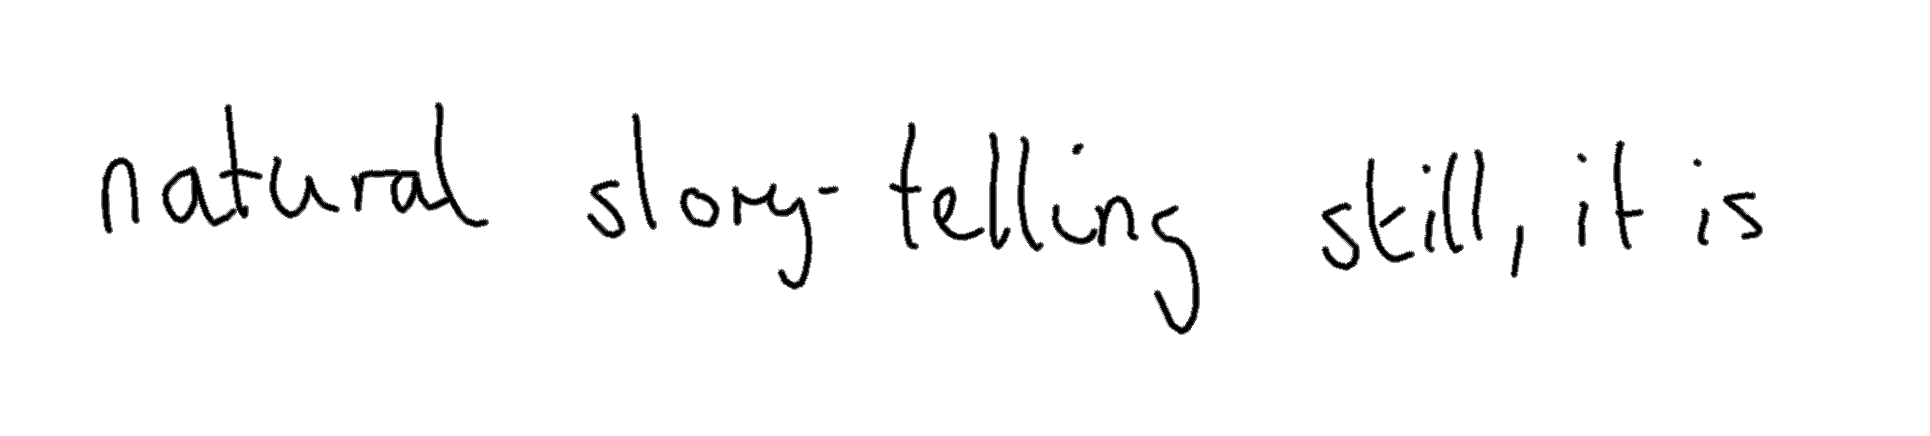 natural story-telling still, it is